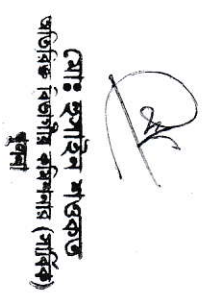 মোঃ হুসাইন শওকত
অতিরিক্ত বিভাগীয় কমিশনার (সার্বিক)
খুলনা